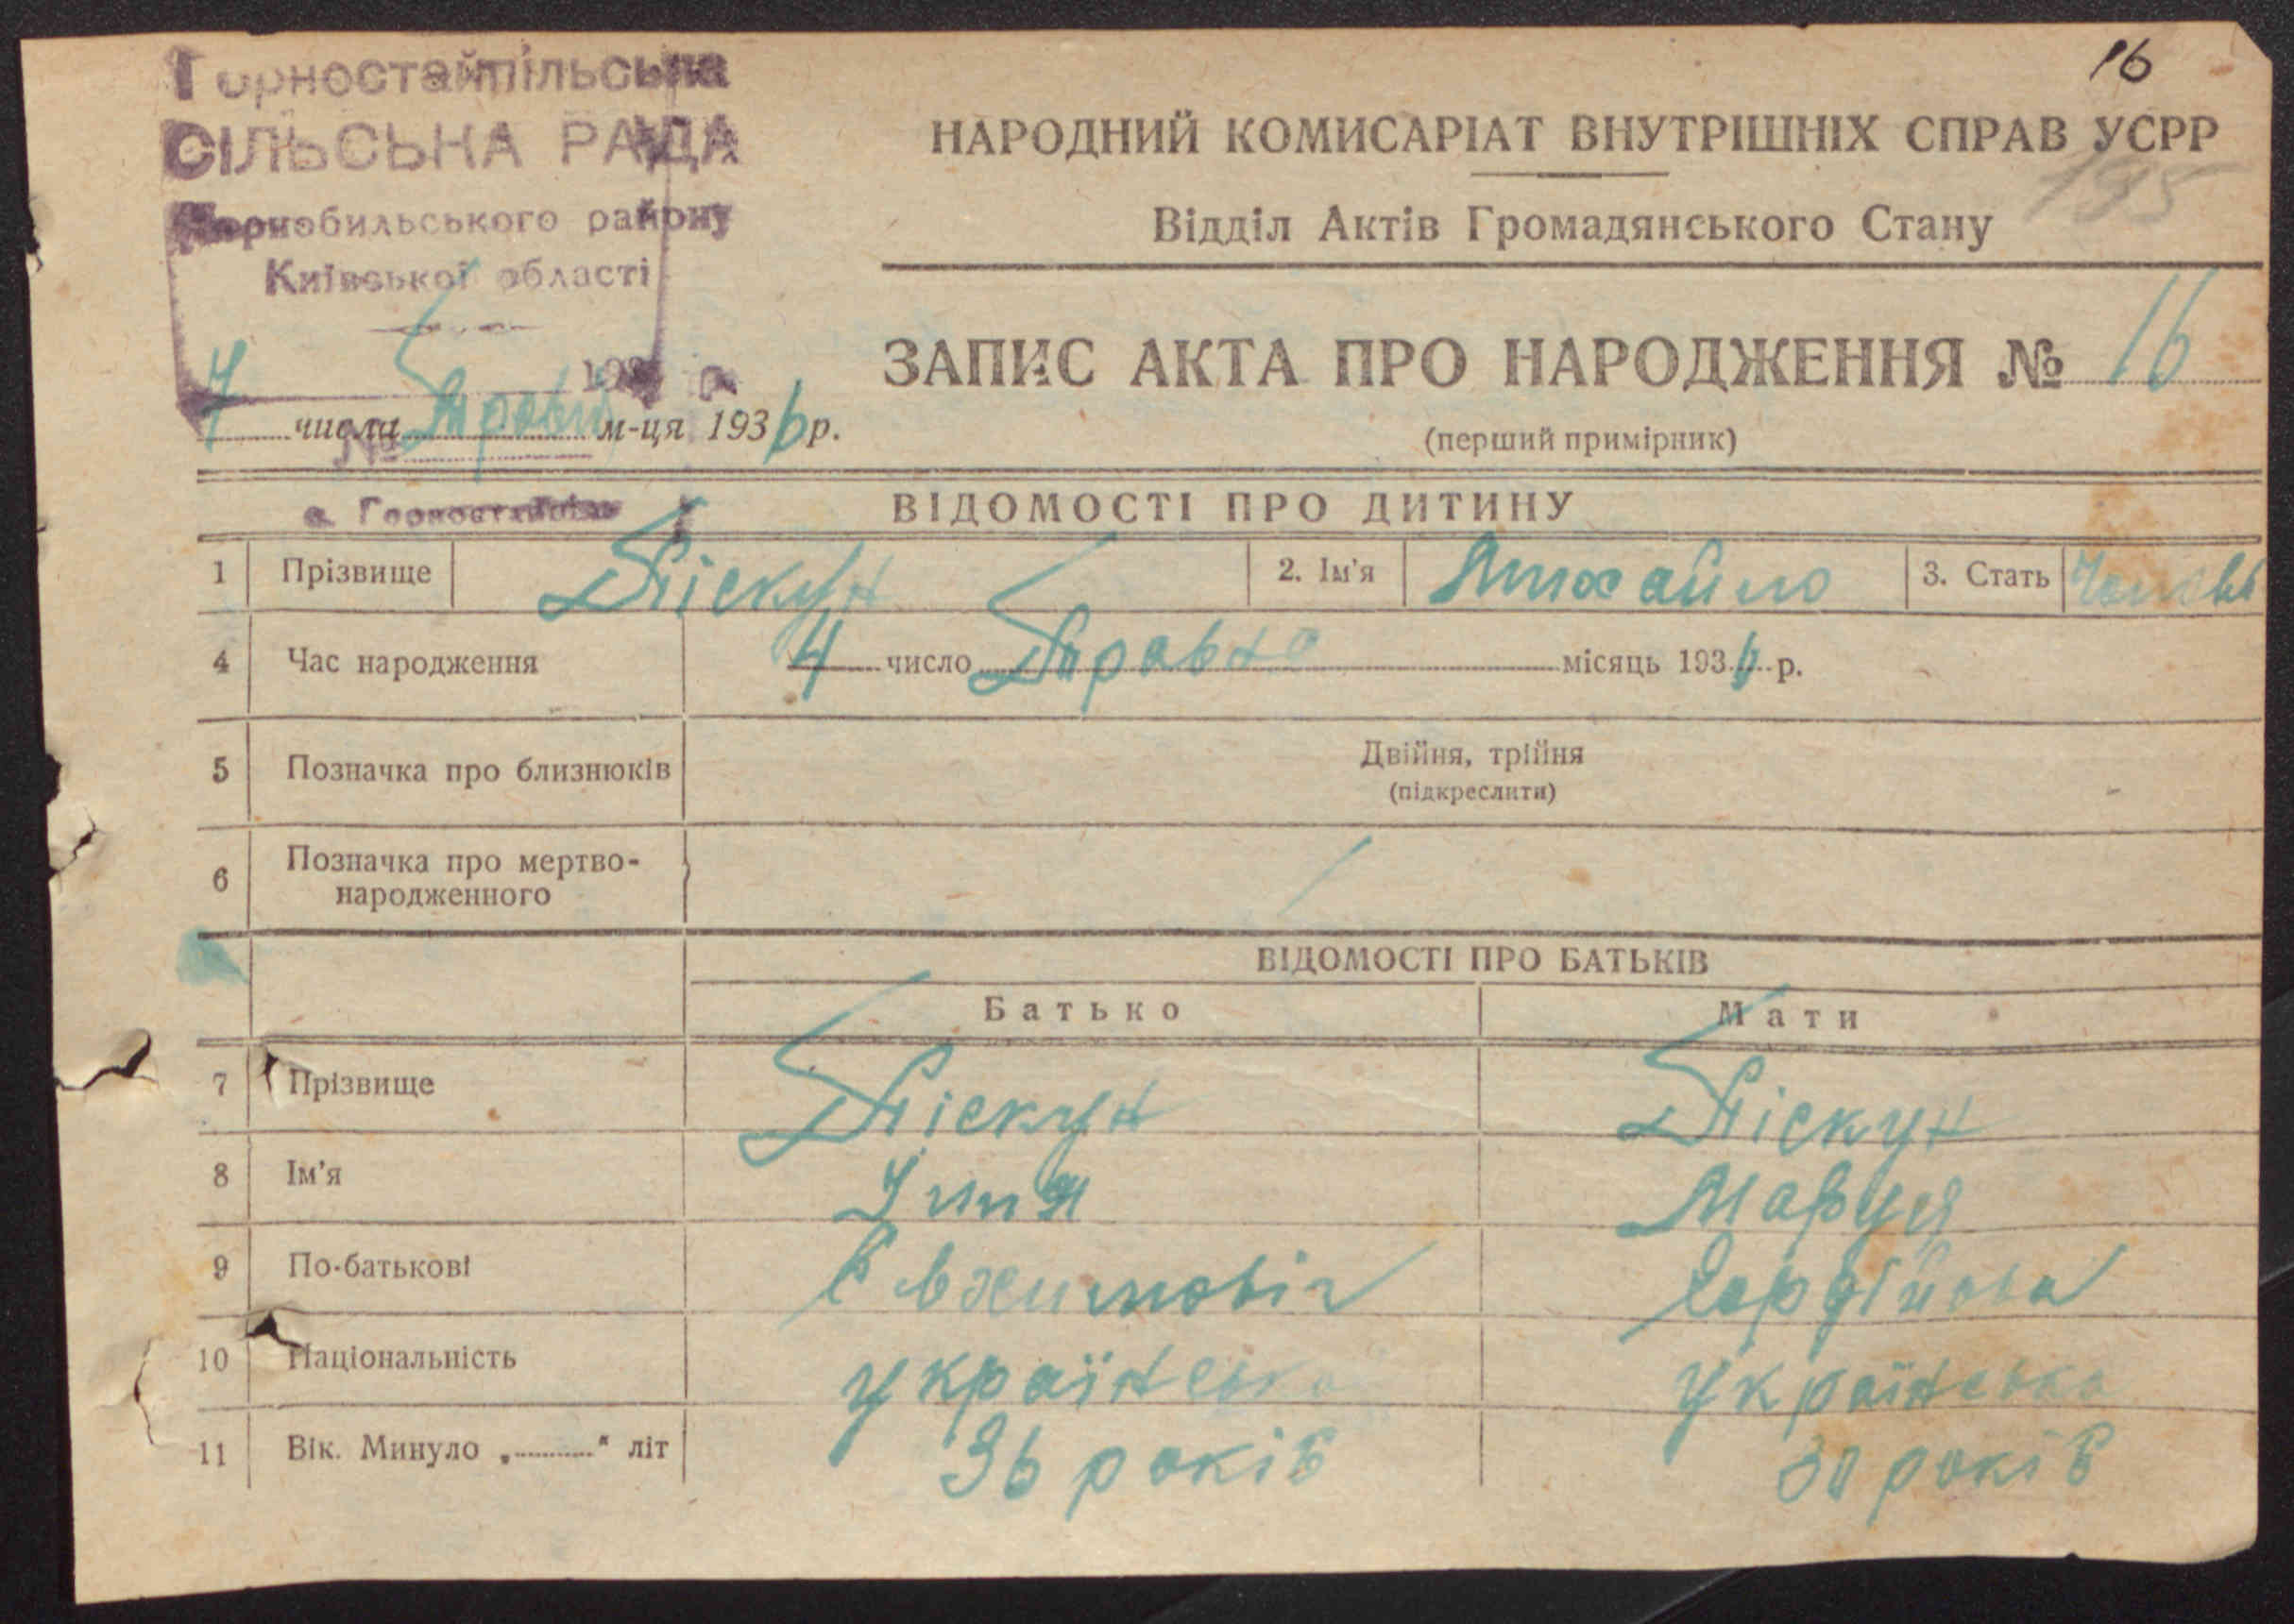 16
Горностайпільська
СІЛЬСЬКА РАДА
Чорнобильського району
Київської області
193 р.
№
с. Горностайпіль
НАРОДНИЙ КОМИСАРІАТ ВНУТРІШНІХ СПРАВ УСРР
195
Відділ Актів Громадянського Стану
ЗАПИС АКТА ПРО НАРОДЖЕННЯ № 16
(перший примірник)
7 числа Травня м-ця 1936 р.
ВІДОМОСТІ ПРО ДИТИНУ
1 Прізвище Піскун 2. Ім'я Михайло 3. Стать
4 Час народження 4 число Травня місяць 1936 р.
5 Позначка про близнюків Двійня, трійня
(підкреслити)
6 Позначка про мертво-
народженного
ВІДОМОСТІ ПРО БАТЬКІВ
Батько Мати
7 Прізвище Піскун Піскун
8 Ім'я Ілля Маруся
9 По-батькові Євхимовіч
10 Національність українська українська
11 Вік. Минуло „ “ літ 36 років 30 років